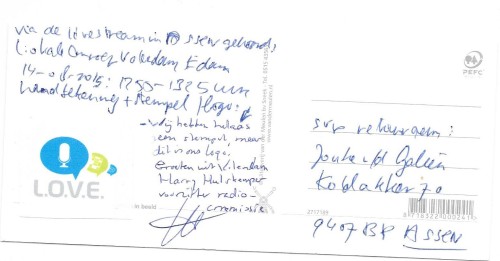 via de livestream in Assen gehoord,
Lokale Omroep Volendam Edam
14-08-2015: 1255-1325 uur
handtekening + stempel / logo:
- wij hebben helaas
een stempel, maar
dit is ons logo.
Groeten uit Volendam
Harry
voorzitter radio-
commissie
L.O.V.E.
in beeld
PEFC
svp retourneren:
Koblakker 70
9407 BR ASSEN
2717189